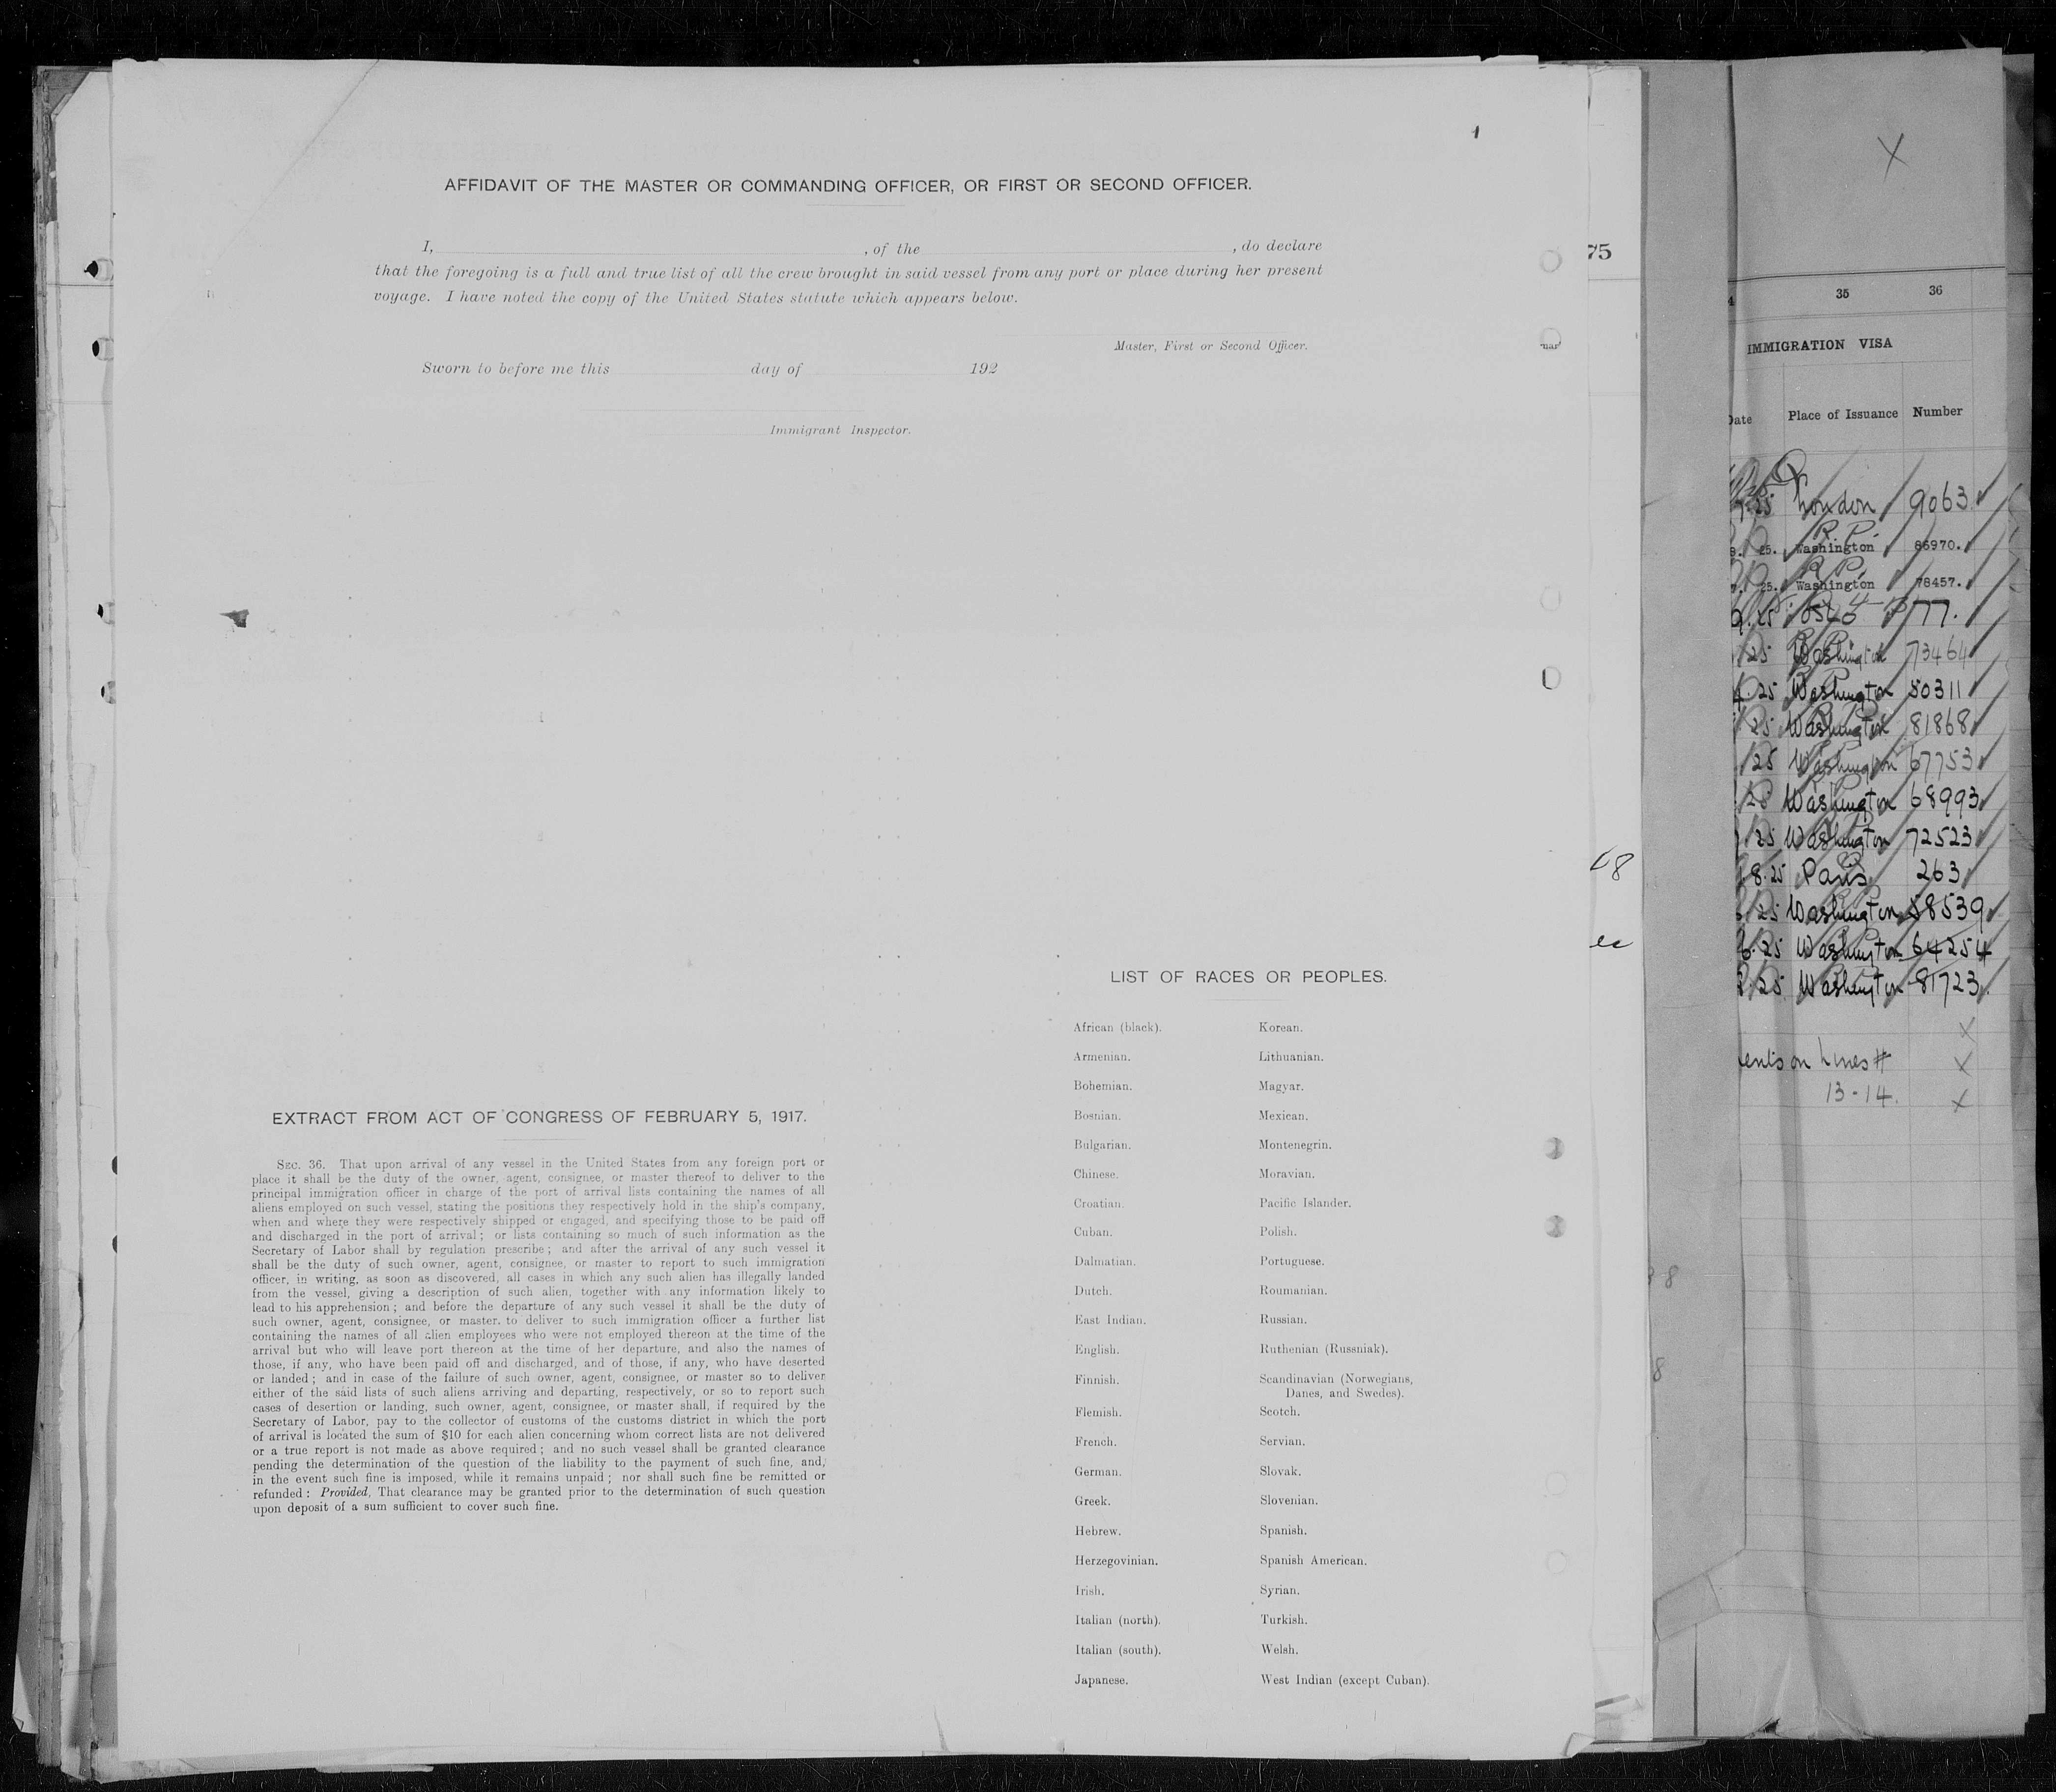 AFFIDAVIT OF THE MASTER OR COMMANDING OFFICER, OR FIRST OR SECOND OFFICER.
I, , of the , do declare
that the foregoing is a full and true list of all the crew brought in said vessel from any port or place during her present
voyage. I have noted the copy of the United States statute which appears below.
Master, First or Second Officer.
Sworn to before me this day of 192
Immigrant Inspector.
EXTRACT FROM ACT OF CONGRESS OF FEBRUARY 5, 1917.
SEC. 36. That upon arrival of any vessel in the United States from any foreign port or
place it shall be the duty of the owner, agent, consignee, or master thereof to deliver to the
principal immigration officer in charge of the port of arrival lists containing the names of all
aliens employed on such vessel, stating the positions they respectively hold in the ship's company,
when and where they were respectively shipped or engaged, and specifying those to be paid off
and discharged in the port of arrival; or lists containing so much of such information as the
Secretary of Labor shall by regulation prescribe; and after the arrival of any such vessel it
shall be the duty of such owner, agent, consignee, or master to report to such immigration
officer, in writing, as soon as discovered, all cases in which any such alien has illegally landed
from the vessel, giving a description of such alien, together with any information likely to
lead to his apprehension; and before the departure of any such vessel it shall be the duty of
such owner, agent, consignee, or master, to deliver to such immigration officer a further list
containing the names of all alien employees who were not employed thereon at the time of the
arrival but who will leave port thereon at the time of her departure, and also the names of
those, if any, who have been paid off and discharged, and of those, if any, who have deserted
or landed; and in case of the failure of such owner, agent, consignee, or master so to deliver
either of the said lists of such aliens arriving and departing, respectively, or so to report such
cases of desertion or landing, such owner, agent, consignee, or master shall, if required by the
Secretary of Labor, pay to the collector of customs of the customs district in which the port
of arrival is located the sum of $10 for each alien concerning whom correct lists are not delivered
or a true report is not made as above required; and no such vessel shall be granted clearance
pending the determination of the question of the liability to the payment of such fine, and,
in the event such fine is imposed, while it remains unpaid; nor shall such fine be remitted or
refunded: Provided, That clearance may be granted prior to the determination of such question
upon deposit of a sum sufficient to cover such fine.
LIST OF RACES OR PEOPLES.
African (black). Korean.
Armenian. Lithuanian.
Bohemian. Magyar.
Bosnian. Mexican.
Bulgarian. Montenegrin.
Chinese. Moravian.
Croatian. Pacific Islander.
Cuban. Polish.
Dalmatian. Portuguese.
Dutch. Roumanian.
East Indian. Russian.
English. Ruthenian (Russniak).
Finnish. Scandinavian (Norwegians,
Danes, and Swedes).
Flemish. Scotch.
French. Servian.
German. Slovak.
Greek. Slovenian.
Hebrew. Spanish.
Herzegovinian. Spanish American.
Irish. Syrian.
Italian (north). Turkish.
Italian (south). Welsh.
Japanese. West Indian (except Cuban).
75
X
35 36
IMMIGRATION VISA
Date Place of Issuance Number
25 London 9063
R.P.
25. Washington 86970.
R.P.
25. Washington 78457.
25 Oslo 77.
25 Washington 73464
25 Washington 50311
25 Washington 81868
25 Washington 67753
25 Washington 68993
25 Washington 72523
8.25 Paris 263
25 Washington 58539
25 Washington 64254
25 Washington 81723.
X
on Lines # X
13-14. X